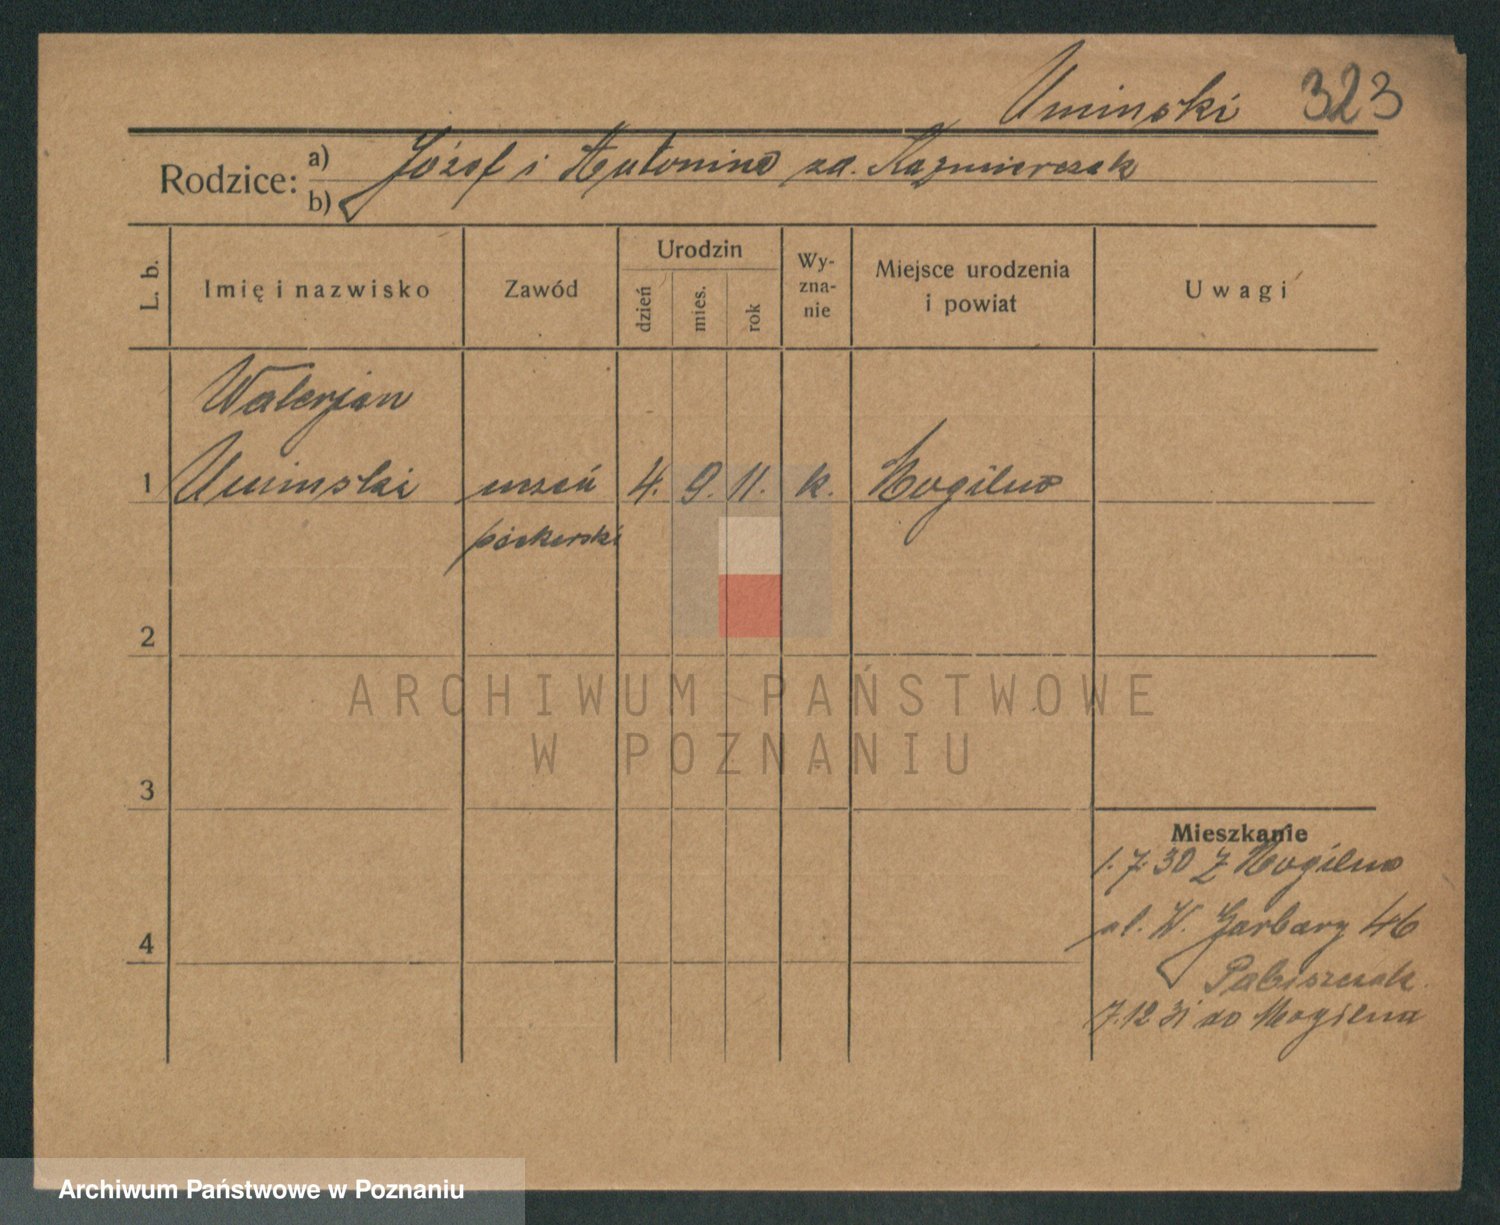 Uminski 323
Rodzice: a) Józef i Antonina zd. Kazmierczak
b)
L. b.
Imię i nazwisko
Zawód
Urodzin
dzień
mies.
rok
Wy-
zna-
nie
Miejsce urodzenia
i powiat
Uwagi
Walerjan
1 Uminski uczeń 4. 9. 11. k. Mogilno
piekarski
2
ARCHIWUM PAŃSTWOWE
W POZNANIU
3
Mieszkanie
1.7.30 z Mogilno
ul. W. Garbary 46
4
Pabiszczak
7.12 31 do Mogilna
Archiwum Państwowe w Poznaniu